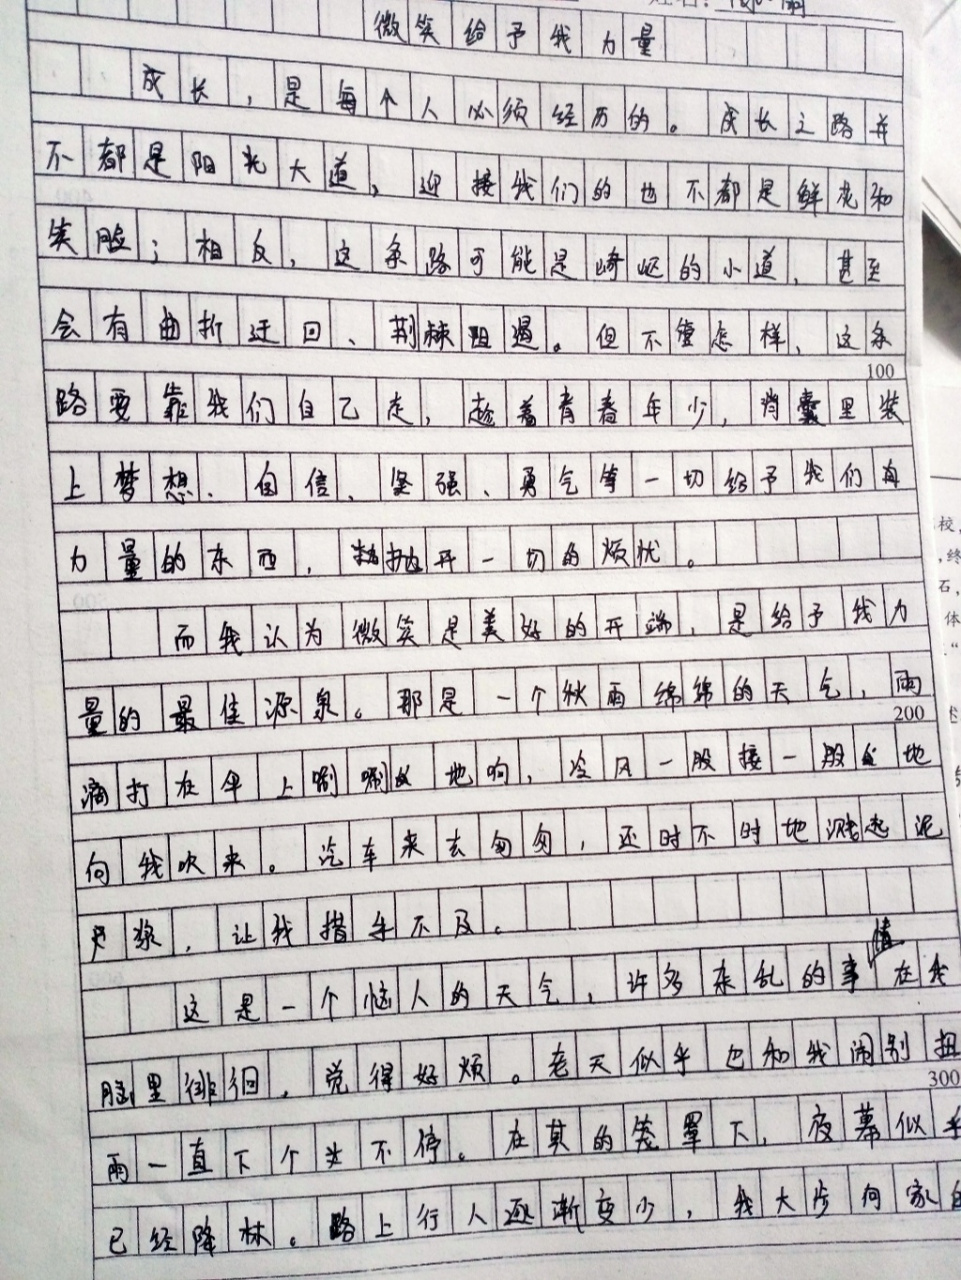 微笑给予我力量
成长，是每个人必须经历的。成长之路并
不都是阳光大道，迎接我们的也不都是鲜花和
笑脸；相反，这条路可能是崎岖的小道，甚至
会有曲折迂回、荆棘阻遏。但不管怎样，这条
100
路要靠我们自己走，趁着青春年少，背囊里装
上梦想、自信、坚强、勇气等一切给予我们有
力量的东西，抛开一切的烦忧。
而我认为微笑是美好的开端，是给予我力
量的最佳源泉。那是一个秋雨绵绵的天气，雨
200
滴打在伞上唰唰地响，冷风一股接一股地
向我吹来。汽车来去匆匆，还时不时地溅起泥
浆，让我措手不及。
这是一个恼人的天气，许多杂乱的事情在我
脑里徘徊，觉得好烦。老天似乎也和我闹别扭
300
雨一直下个不停。在其的笼罩下，夜幕似乎
已经降林。路上行人逐渐变少，我大步向家的
校，
终
石，
体
述